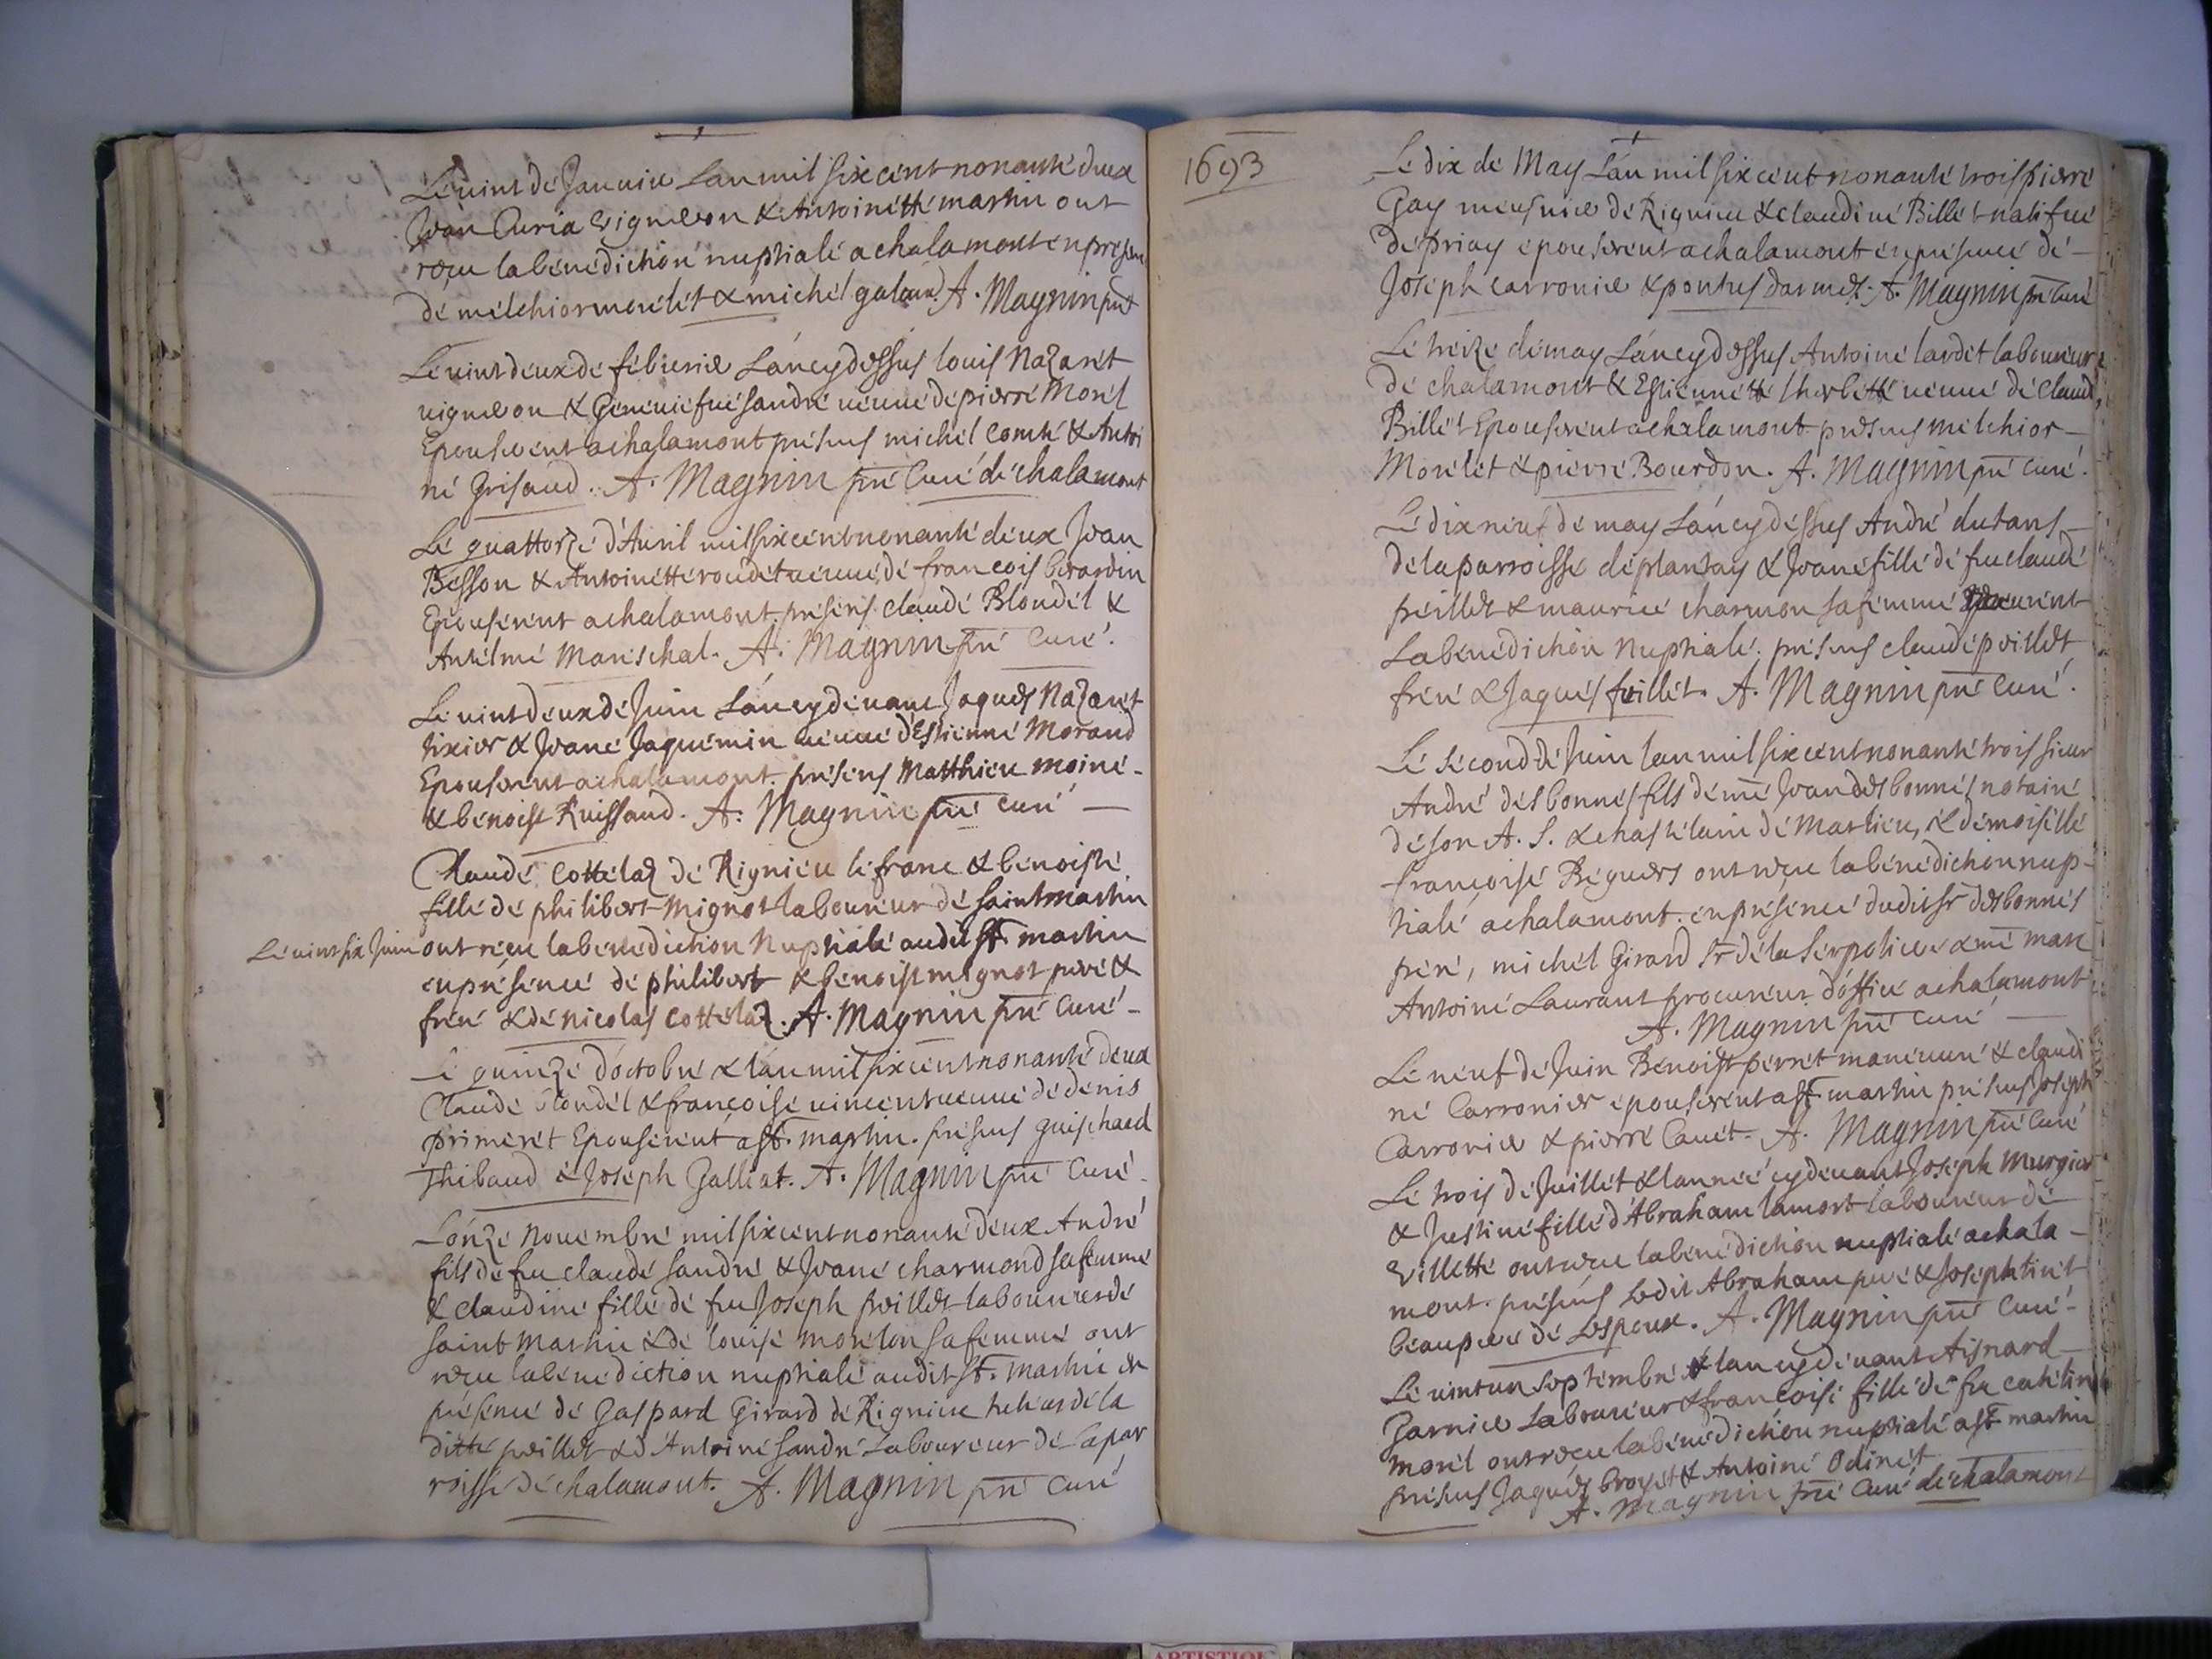 Le vint de Janvier L'an mil six cent nonante deux
Jean Curia vigneron & Antoinette martin ont
receu la bénédiction nuptiale a chalamont en presen
de mélchior morélét & michél galand. A. Magnin pre
Le vint deux de fébvrier L'an cy dessus louis Nazarét
vigneron & Généviefue sandre véuve de pierre Morél
Epouserent a chalamont présens michél Comte & Antoi
né Grisaud. A. Magnin pre Curé de chalamont
Le quattorze d'Avril mil six cent nonante deux Jean
Bésson & Antoinette roudét véuve de francois bérardin
Epouserent a chalamont présens claude Blondél &
Antélme Maréschal. A. Magnin pre Curé.
Le vint deux de Juin L'an cy devant Jaques Nazarét
tixier & Jeane Jaquémin véuve d'Estienne Morand
Epouserent a chalamont. présens Matthieu moine -
& benoist Ruissaud. A. Magnin pre curé —
Claude Cottélaz de Rignieu le franc & benoiste
fille de philibert Mignot laboureur de Saint martin
Le vint six Juin ont reçu la bénédiction Nuptiale audit St. martin
en présence de philibert & benoist mignot pere &
frére & de nicolas Cottélaz. A. Magnin pre Curé -
Le quinze d'octobre & l'an mil six cent nonante deux
Claude blondél & françoise vincent véuve de denis
primerét Epouserent a St. martin. présens guischard
Thibaud & Joseph Galliat. A. Magnin pre Curé.
L'onze Novembre mil six cent nonante deux André
fils de feu claude sandre & Jeane charmond sa femme
& claudine fille de feu Joseph peillet laboureur de
saint Martin & de louise morélon sa femme ont
receu la bénédiction nuptiale audit St. Martin en
présence de Gaspard Girard de Rignieu de la
ditte peillet & d'Antoine sandre Laboureur de la par
roisse de chalamont. A. Magnin pre Curé
1693
Le dix de May L'an mil six cent nonante trois pierre
Gay meusnier de Rignieu & claudine Billét natifue
de priay epouserent a chalamont en présence de -
Joseph carronier & ponthus darmés. A. Magnin pre Curé
Le treize de may L'an cy dessus Antoine lardét laboureur
de chalamont & Estiennétte therbétte véuve de claude
Billét Epouserent a chalamont présens mélchior -
Morélét & pierre Bourdon. A. Magnin pre Curé.
Le dix neuf de may L'an cy dessus André dutans -
de la parroisse de plantay & Jeane fille de feu claude
peillet & maurice charmon sa femme receurent
La bénédiction Nuptiale. présens claude peillet
frére & Jaques feillét. A. Magnin pre Curé.
Le sécond de Juin l'an mil six cent nonante trois sieur
André désbonnés fils de me Jean désbonnés notaire
de son A. S. & chastélain de Marlieu, & démoiselle
françoise Béguers ont receu la bénédiction nup-
tiale a chalamont. en présence dudit sr désbonnés
pére, michél Girard Sr de la Sérpoliere & me marc
Antoine Laurant procureur d'office a chalamont
A. Magnin pre Curé —
Le neuf de Juin Benoist pérrét manœuvre & claudi
ne Carronier epouserent a St. martin présens Joseph
Carronier & pierre Cauét. A. Magnin pre Curé
Le trois de Juillét & l'année cy devant Joseph Murgier
& Justine fille d'Abraham lamort laboureur de
Villétte ont receu la bénédiction nuptiale a chala -
mont. présens Ledit Abraham pere & Joseph tirét
béaupere de L'espoux. A. Magnin pre Curé -
Le vint un séptémbre & l'an cy devant Aisnard
Garnier Laboureur & françoise fille de feu catélin
morél ont receu la bénédiction nuptiale a St martin
présens Jaques broyét & Antoine Odinét
A. Magnin pre Curé de chalamont
ARTISTIQUE